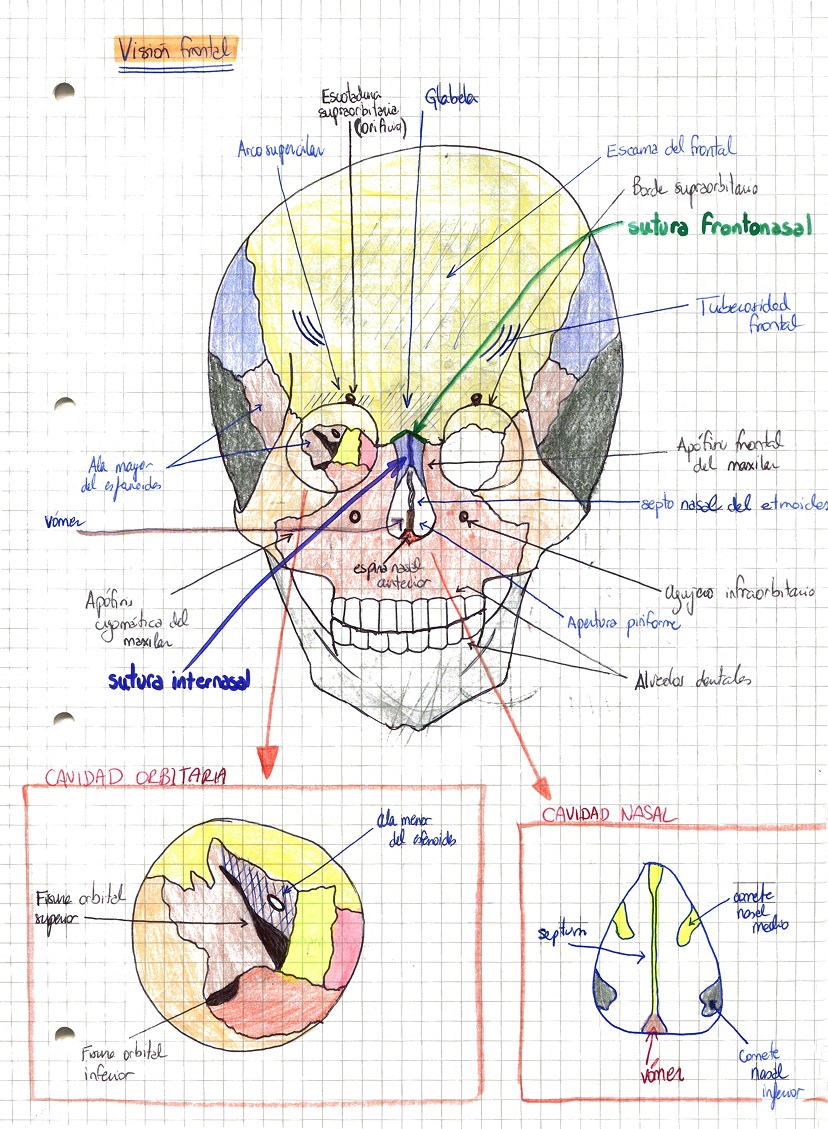 Visión frontal
Escotadura
supraorbitaria
(orificio)
Glabela
Arco superciliar
Escama del frontal
Borde supraorbitario
sutura frontonasal
Tuberosidad
frontal
Ala mayor
del esfenoides
Apófisis frontal
del maxilar
septo nasal del etmoides
vómer
espina nasal
anterior
Apófisis
cigomática del
maxilar
agujero infraorbitario
Apertura piriforme
sutura internasal
Alveolos dentales
CAVIDAD ORBITARIA
Ala menor
del esfenoides
Fisura orbital
superior
Fisura orbital
inferior
CAVIDAD NASAL
cornete
nasal
medio
septum
vómer
Cornete
nasal
inferior